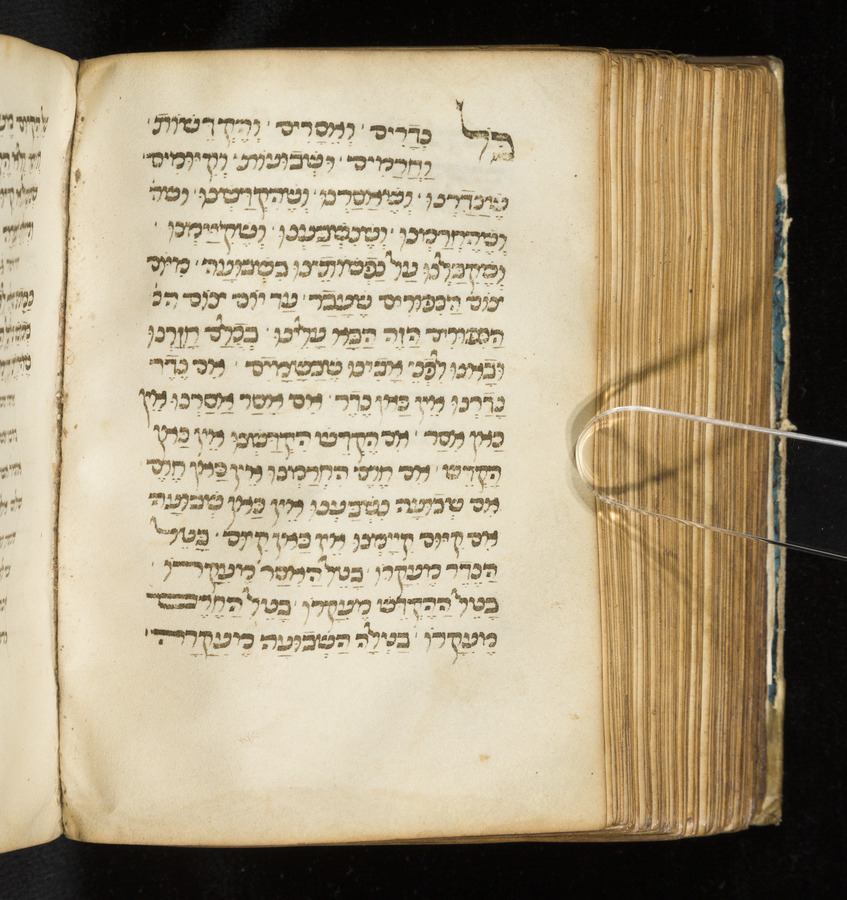 כל נדרים ואסרים והקדשות
וחרמים ושבועות וקיומים
שנדרנו ושאסרנו ושהקדשנו ושה
ושהחרמנו ושנשבענו ושקיימנו
ושקבלנו על נפשותינו בשבועה מיום
יום הכפורים שעבר עד יום יום הכ
הכפורים הזה הבא עלינו בכולם חזרנו
ובאנו לפני אבינו שבשמים אם נדר
נדרנו אין כאן נדר אם אסר אסרנו אין
כאן אסר אם הקדש הקדשנו אין כאן
הקדש אם חרם החרמנו אין כאן חרם
אם שבועה נשבענו אין כאן שבועה
אם קיום קיימנו אין כאן קיום בטל
הנדר מעקרו בטל האסר מעקרו
בטל ההקדש מעקרו בטל החרם
מעקרו בטלה השבועה מעקרה